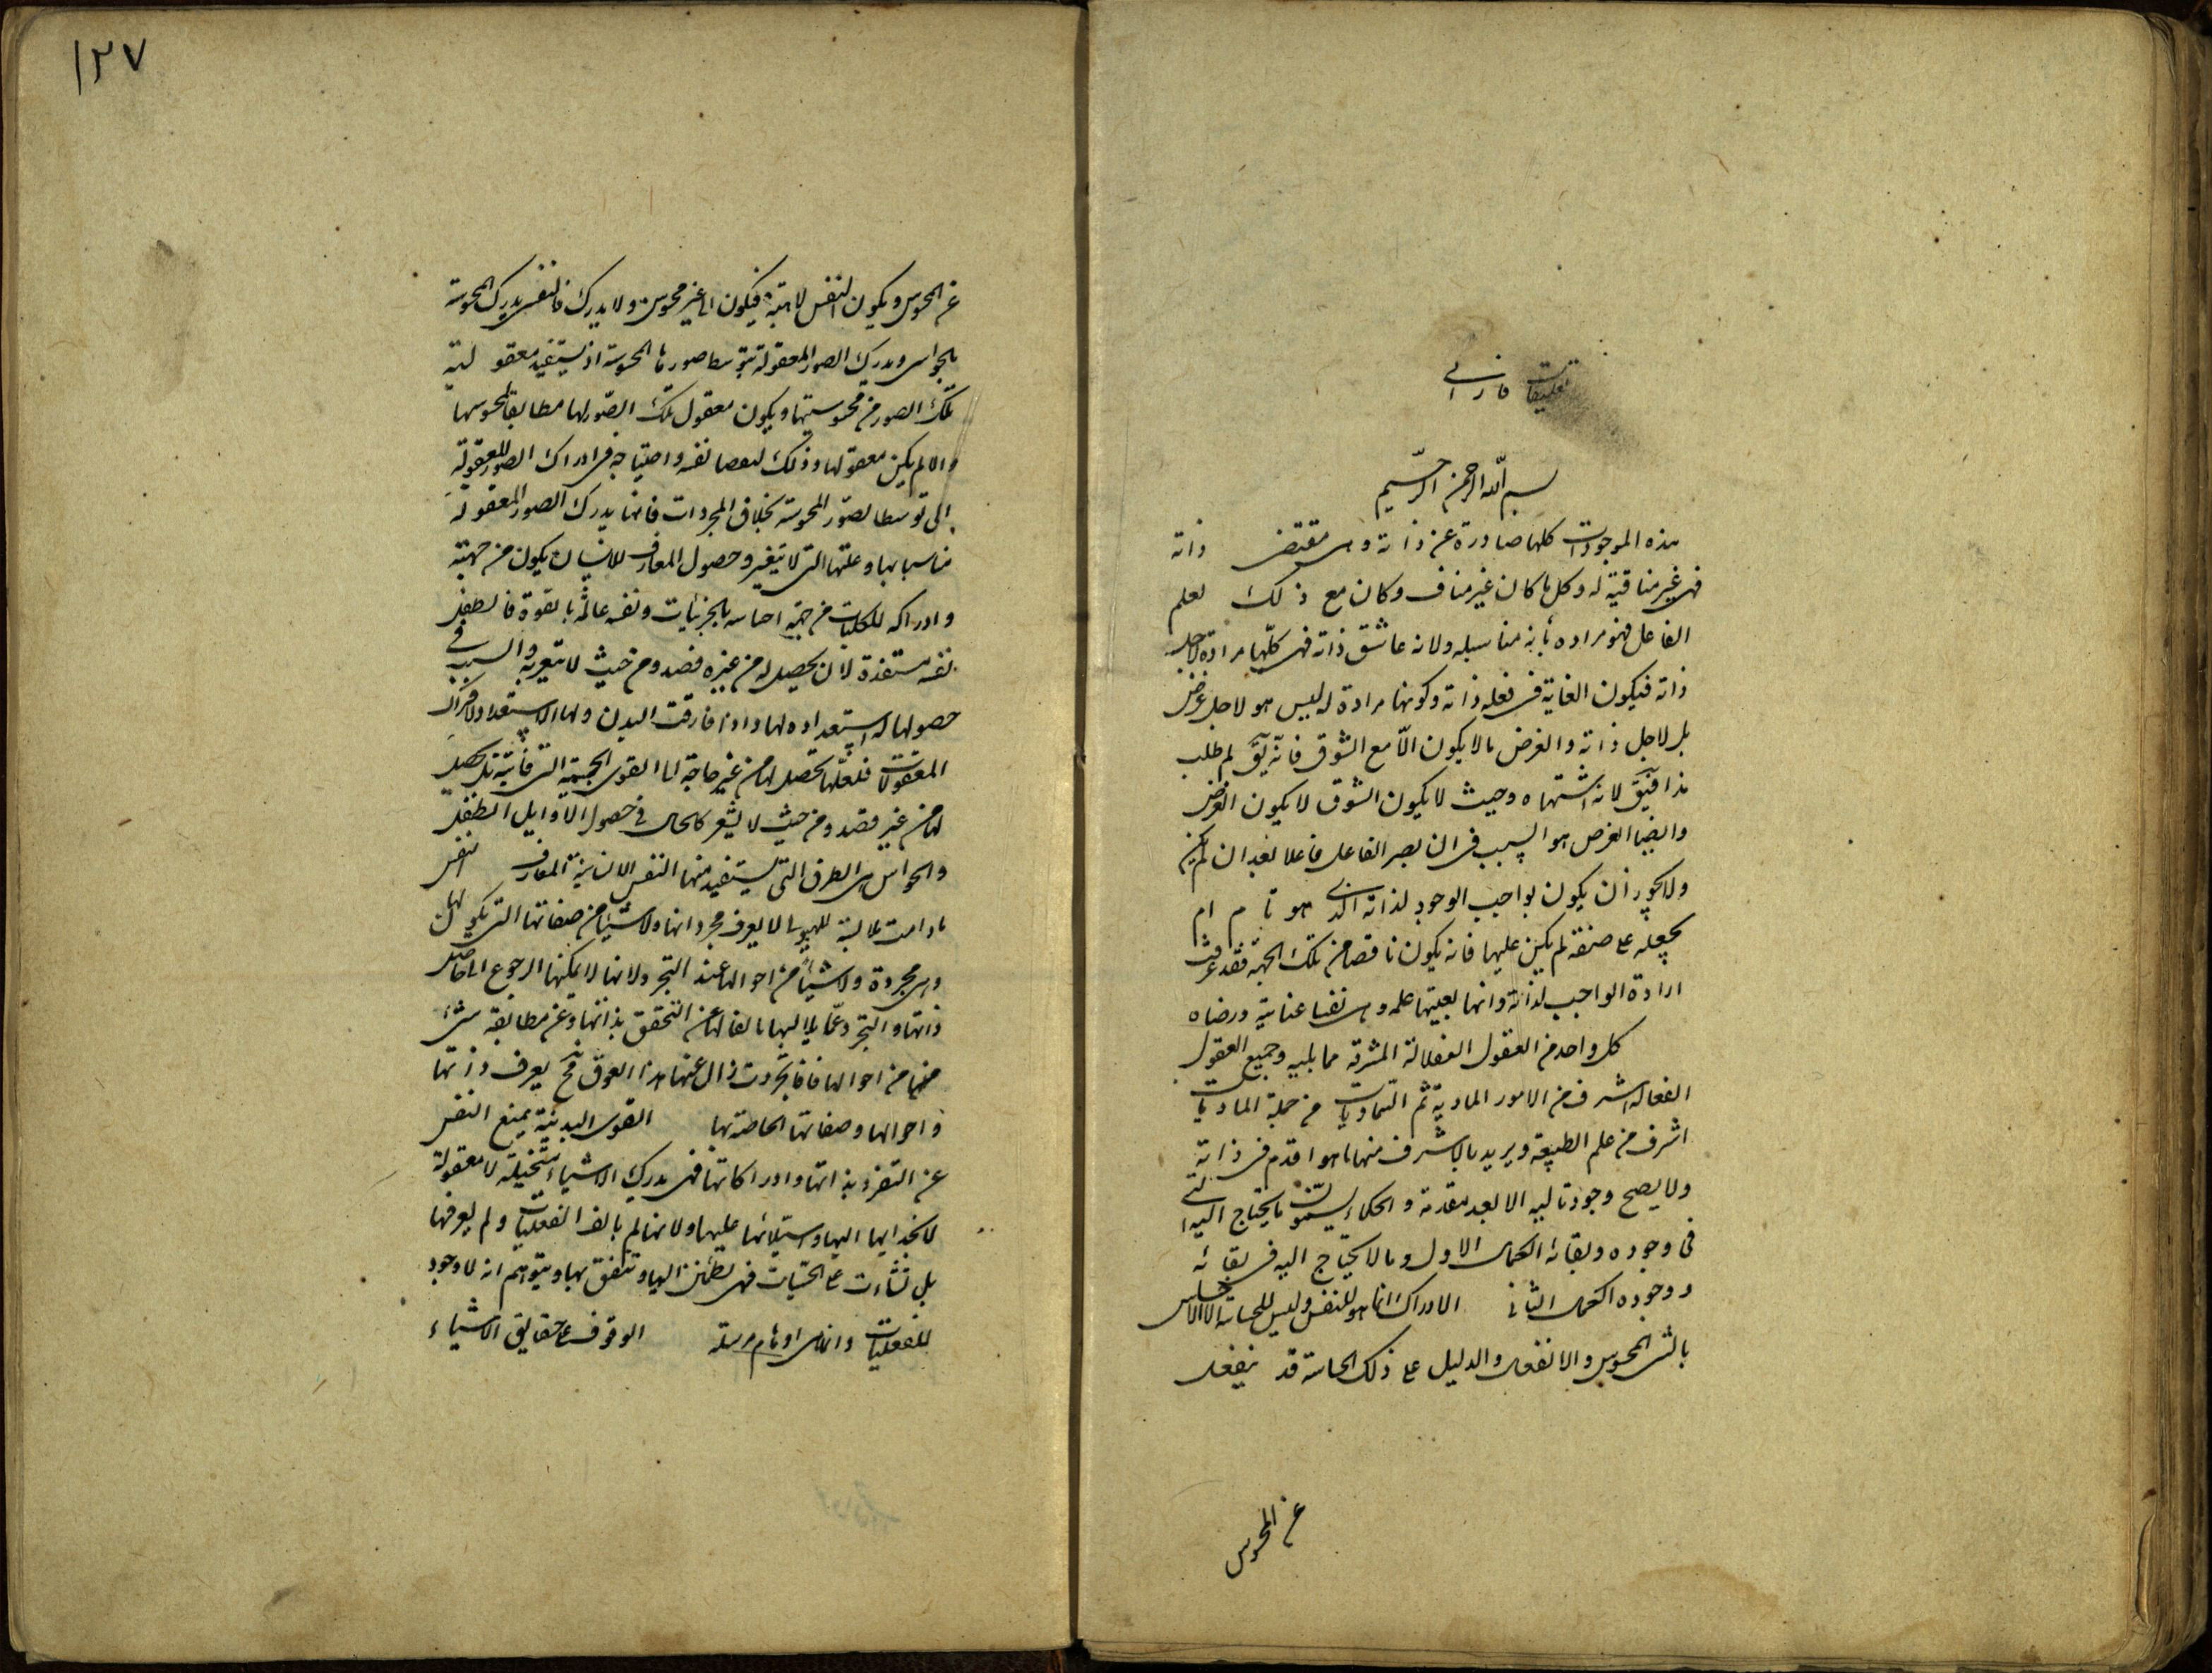 تعليقات فارابى
بسم الله الرحمن الرحيم
هذه الموجودات كلها صادرة عن ذاته وهى مقتضى ذاته
فهى غير منافية له وكل ما كان غير مناف وكان مع ذلك لعلم
الفاعل فهو مراده بانه مناسب له ولانه عاشق ذاته فهى كلّها مرادة لاجل
ذاته فيكون الغاية فى فعله ذاته وكونها مرادة له ليس هو لاجل غرض
بل لاجل ذاته والغرض ما لا يكون الّا مع الشوق فانّه يق لم طلب
هذا فيق لانه اشتهاه وحيث لا يكون الشوق لا يكون الغرض
وايضا الغرض هو السبب فى ان يصير الفاعل فاعلا بعد ان لم يكن
ولا يجوز ان يكون لواجب الوجود لذاته الذى هو تام ام
يجعله على صفة لم يكن عليها فانه يكون ناقصا من تلك الجهة فقد عرفت
ارادة الواجب لذاته وانها بعينها علمه وهى نفسا عنايته ورضاه
كل واحد من العقول الفعالة اشرف مما يليه وجميع العقول
الفعالة اشرف من الامور المادية ثم السماويات من جملة الماديات
اشرف من علم الطبيعة ويريد بالاشرف منها ما هو اقدم فى ذاته
ولا يصح وجود تاليه الا بعد متقدمه والحكماء يسمون ما يحتاج اليه الشئ
فى وجوده وبقائه الكمال الاول وما لا يحتاج اليه فى بقائه
ووجوده الكمال الثانى الادراك انما هو للنفس وليس للحاسة الا الاحساس
بالشئ المحسوس والانفعال والدليل على ذلك الحاسة قد ينفعل
عن المحسوس
١٢٧
عن المحسوس ويكون النفس لاهية فيكون الشئ غير محسوس ولا يدرك فالنفس يدرك المحسوسة
بالحواس ويدرك الصور المعقولة بتوسط صورها المحسوسة اذ يستفيد معقولية
تلك الصور من محسوسيتها ويكون معقول تلك الصور لها مطابقا لمحسوسها
والا لم يكن معقولها وذلك لنقصان نفسه واحتياجه فى ادراك الصور المعقولة
الى توسط الصور المحسوسة بخلاف المجردات فانها يدرك الصور المعقولة
من اسبابها وعللها التى لا يتغير وحصول المعارف للانسان يكون من جهته
وادراكه للكليات من جهة احساسه بالجزئيات ونفسه عالمة بالقوة فالطفل
نفسه مستعدة لان يحصل له من غيره قصد ومن حيث لا يشعر به والسبب فى
حصولها له استعداده لها واذا فارقت البدن ولها الاستعداد لادراك
المعقولات فلعلها تحصل لها من غير حاجة لها الى القوى الجسمية التى فاتته بل يحصل
لها من غير قصد ومن حيث لا يشعر كالحال فى حصول الاوايل للطفل
والحواس هى الطرق التى يستفيد منها النفس الانسانية المعارف النفس
ما دامت ملابسة للهيولى لا يعرف مجرد ذاتها ولا شيئا من صفاتها التى يكون لها
وهى مجردة ولا شيئا من احوالها عند التجرد لانها لا يمكنها الرجوع الى خاص
ذاتها والتجرد عما يلابسها مانعا لها عن التحقق بذاتها وعن مطابقة شئ
منها من احوالها فاذا تجردت زال عنها هذا العوق فح يعرف ذاتها
واحوالها وصفاتها الخاصة بها القوى البدنية يمنع النفس
عن التفرد بذاتها وادراكاتها فهى يدرك الاشياء متخيلة لا معقولة
لانجذابها اليها واستيلائها عليها ولانها لم يالف العقليات ولم يعرفها
بل نشأت على الحسيات فهى يطمئن اليها ويتفق بها ويتوهم انه لا وجود
للعقليات وانما هى اوهام مرسلة الوقوف على حقايق الاشياء